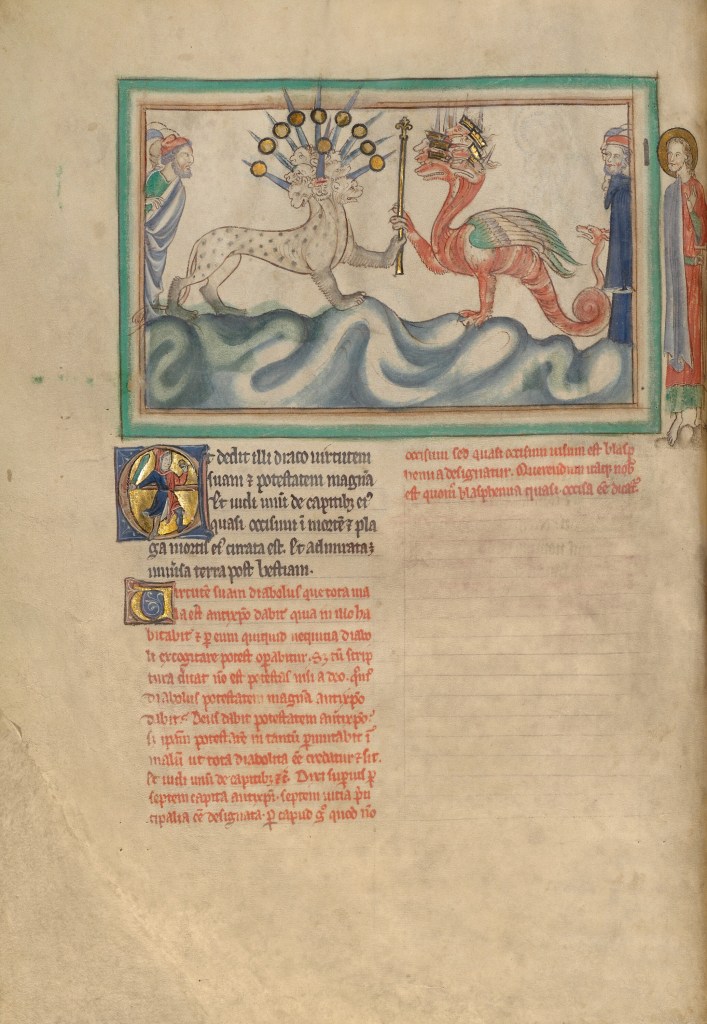 Et dedit illi draco virtutem
suam ⁊ potestatem magnā
Et vidi unū de capitibȝ ei᷒
quasi occisum ī mortē ⁊ pla
ga mortis ei᷒ curata est. Et admirata ē
universa terra post bestiam.
Virtutē suam diabolus que tota ma
la est antixp̄o dabit quia in illo ha
bitabit ⁊ ꝑ eum quicquid nequitia diabo
li excogitare potest operabitur. Sȝ cū scrip
tura dicat nō est potestas nisi a deo.
diabolus potestatem magnā antixp̄o
dabit. Deus dabit potestatem antixp̄o
si ipsam potestatē in tantū permutabit ī
malū ut tota diabolica ēē credatur ⁊ sit.
Et vidi unū de capitibȝ ⁊c̄. Dixi superius ꝑ
septem capita antixp̄i septem vitia prī
cipalia ēē designata. ꝑ capud quod
occisum sed quasi occisum visum est blasp
hemia designatur. Querendum nob᷒
est quom̄ blasphemia quasi occisa ēē dicat᷒.